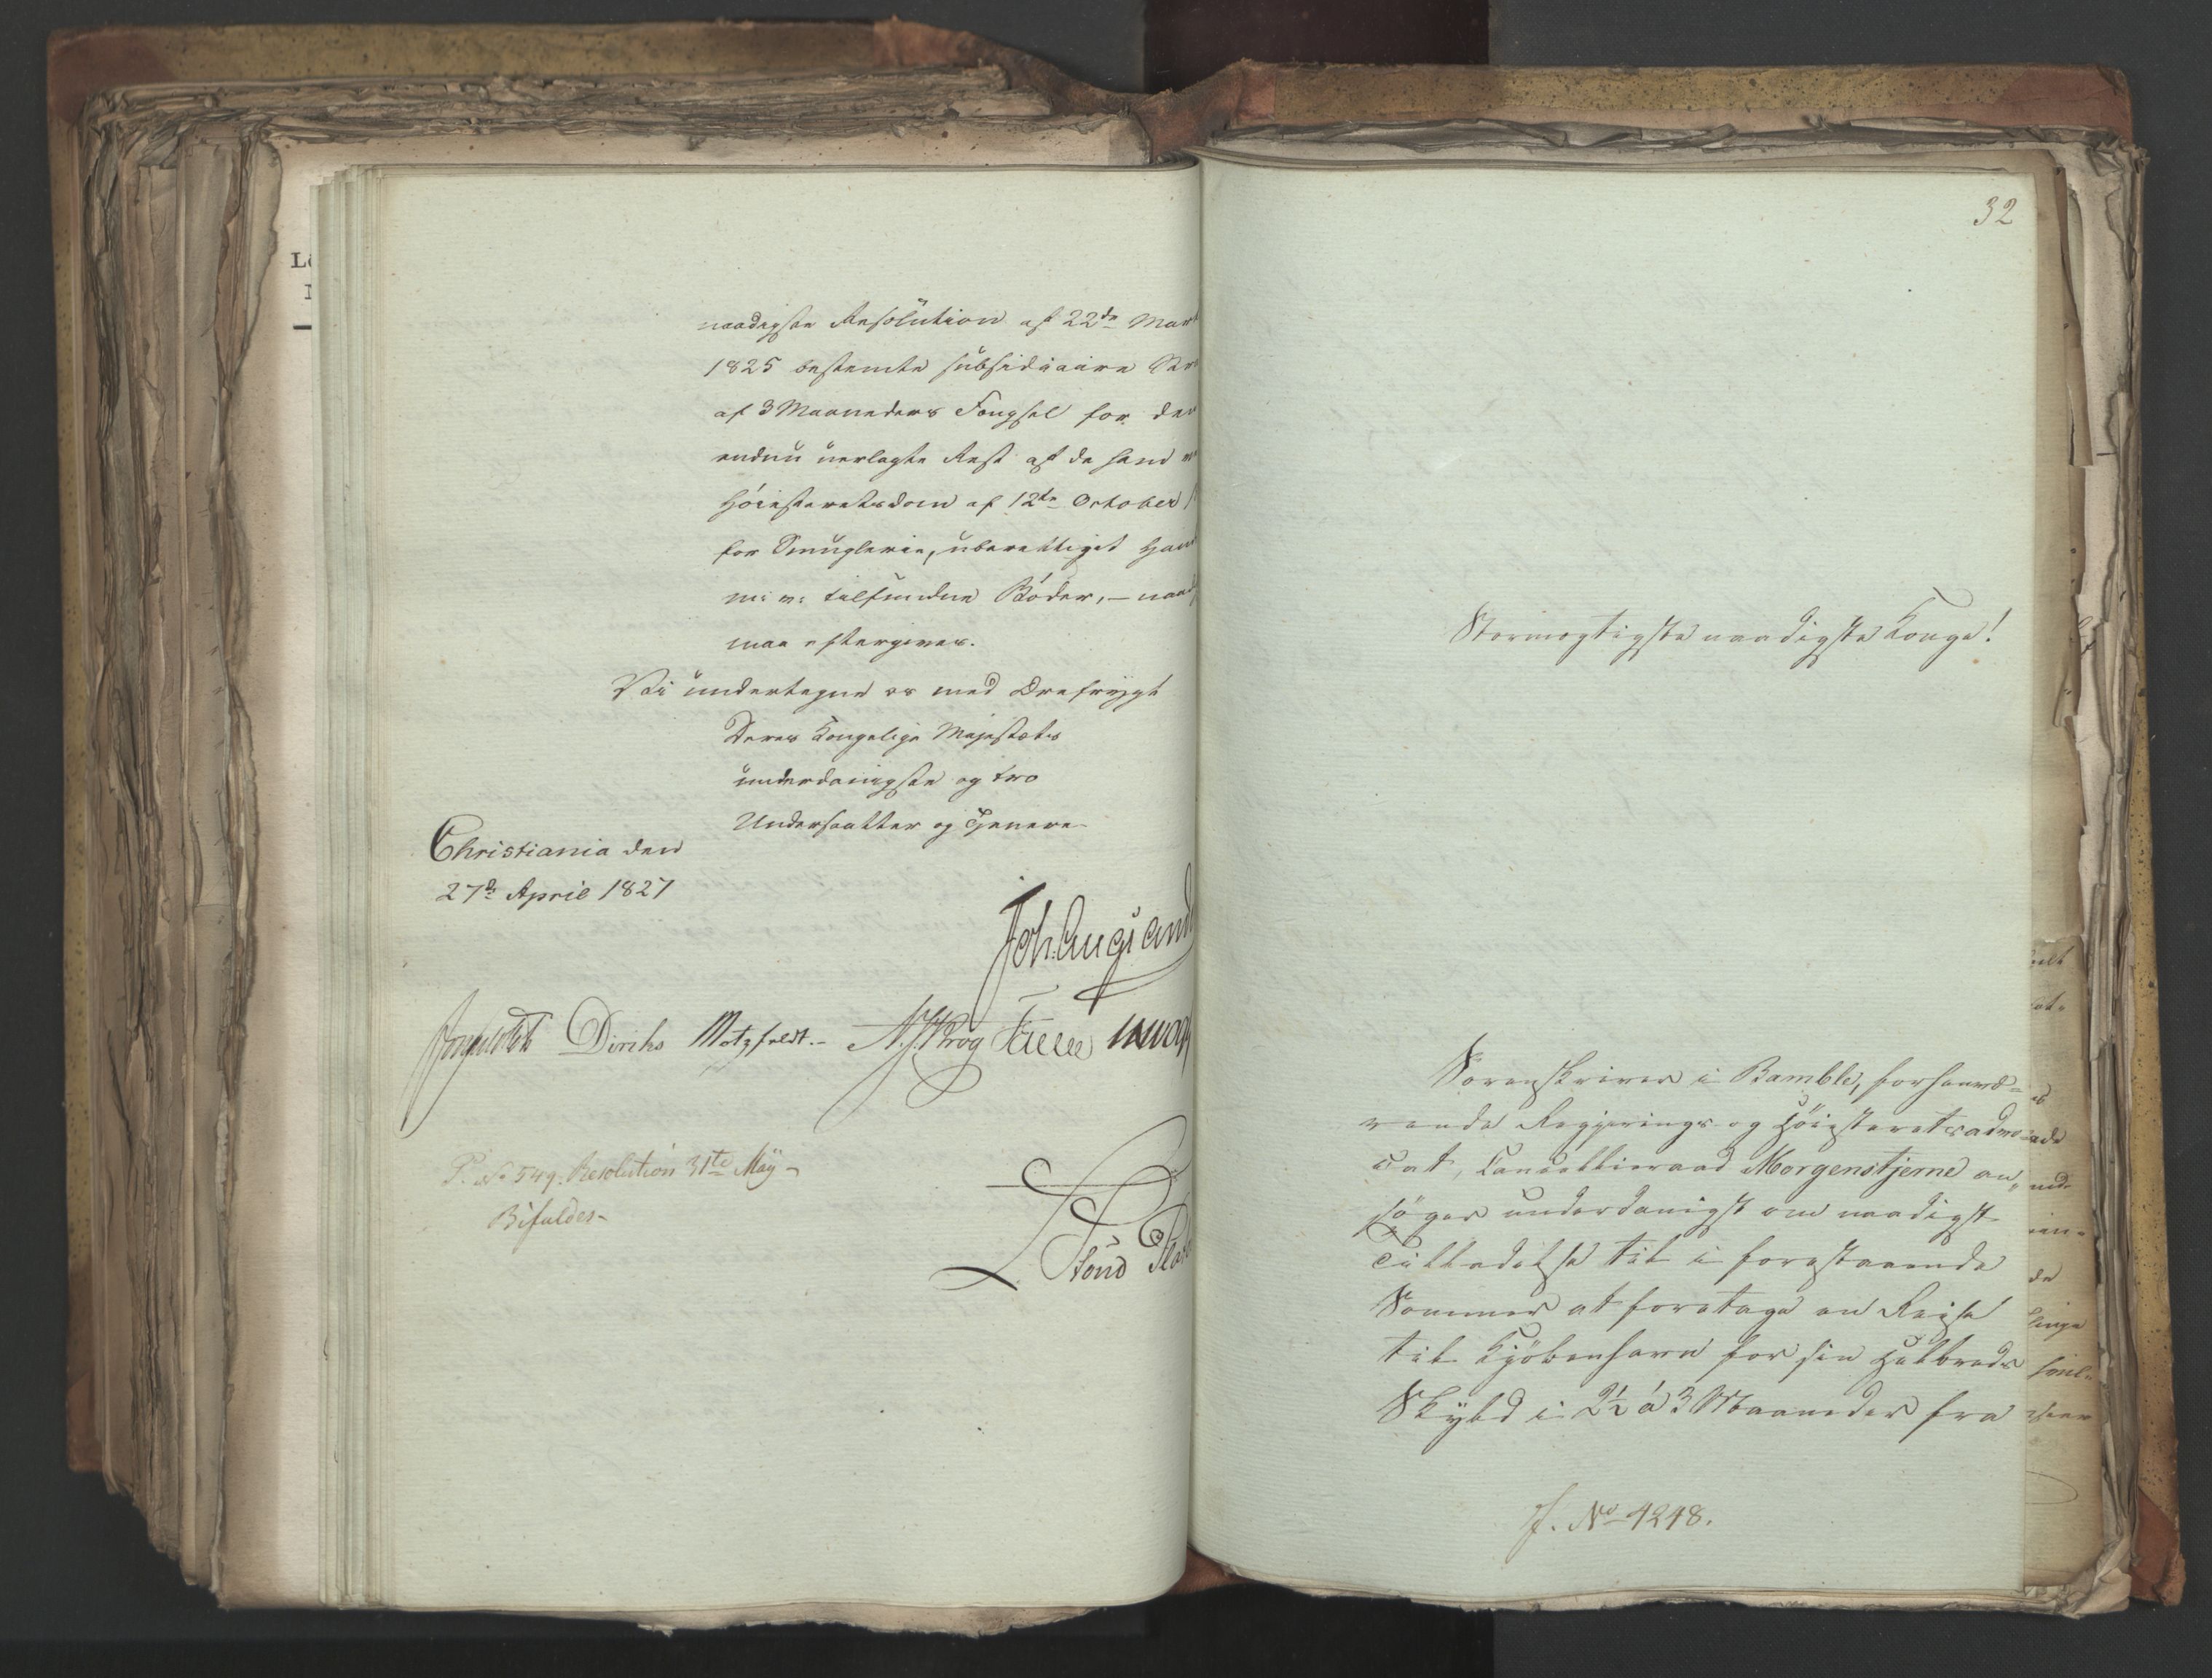 naadigste Resolution af 22de Mart
1825 bestemte subsidiaire
af 3 Maaneders Fængsel for den
endnu uerlagte Rest af de ham
Höiesteretsdom af 12te October
for Smuglerie, uberettiget Han
m: v: tilfundne Böder, — naad
maa eftergives.
Vi undertegne os med Ærefrygt
Deres Kongelige Majestæts
underdanigste og tro
Undersaatter og Tjenere
Christiania den
27de April 1827
Joh. Aug. Sand
Diriks Motzfeldt. — Krog
P. No 549. Resolution 31te May —
Bifaldes —
32
Stormægtigste naadigste Konge!
Sorenskriver i Bamble, forhenvæ=
rende Regjerings- og Höiesteretsadvo=
cat, Cancellieraad Morgenstjerne an„
söger underdanigst om naadigst
Tilladelse til i forestaaende
Sommer at foretage en Reise
til Kjöbenhavn for sin Helbreds
Skyld i 2½ á 3 Maaneder fra
J. No 4248.